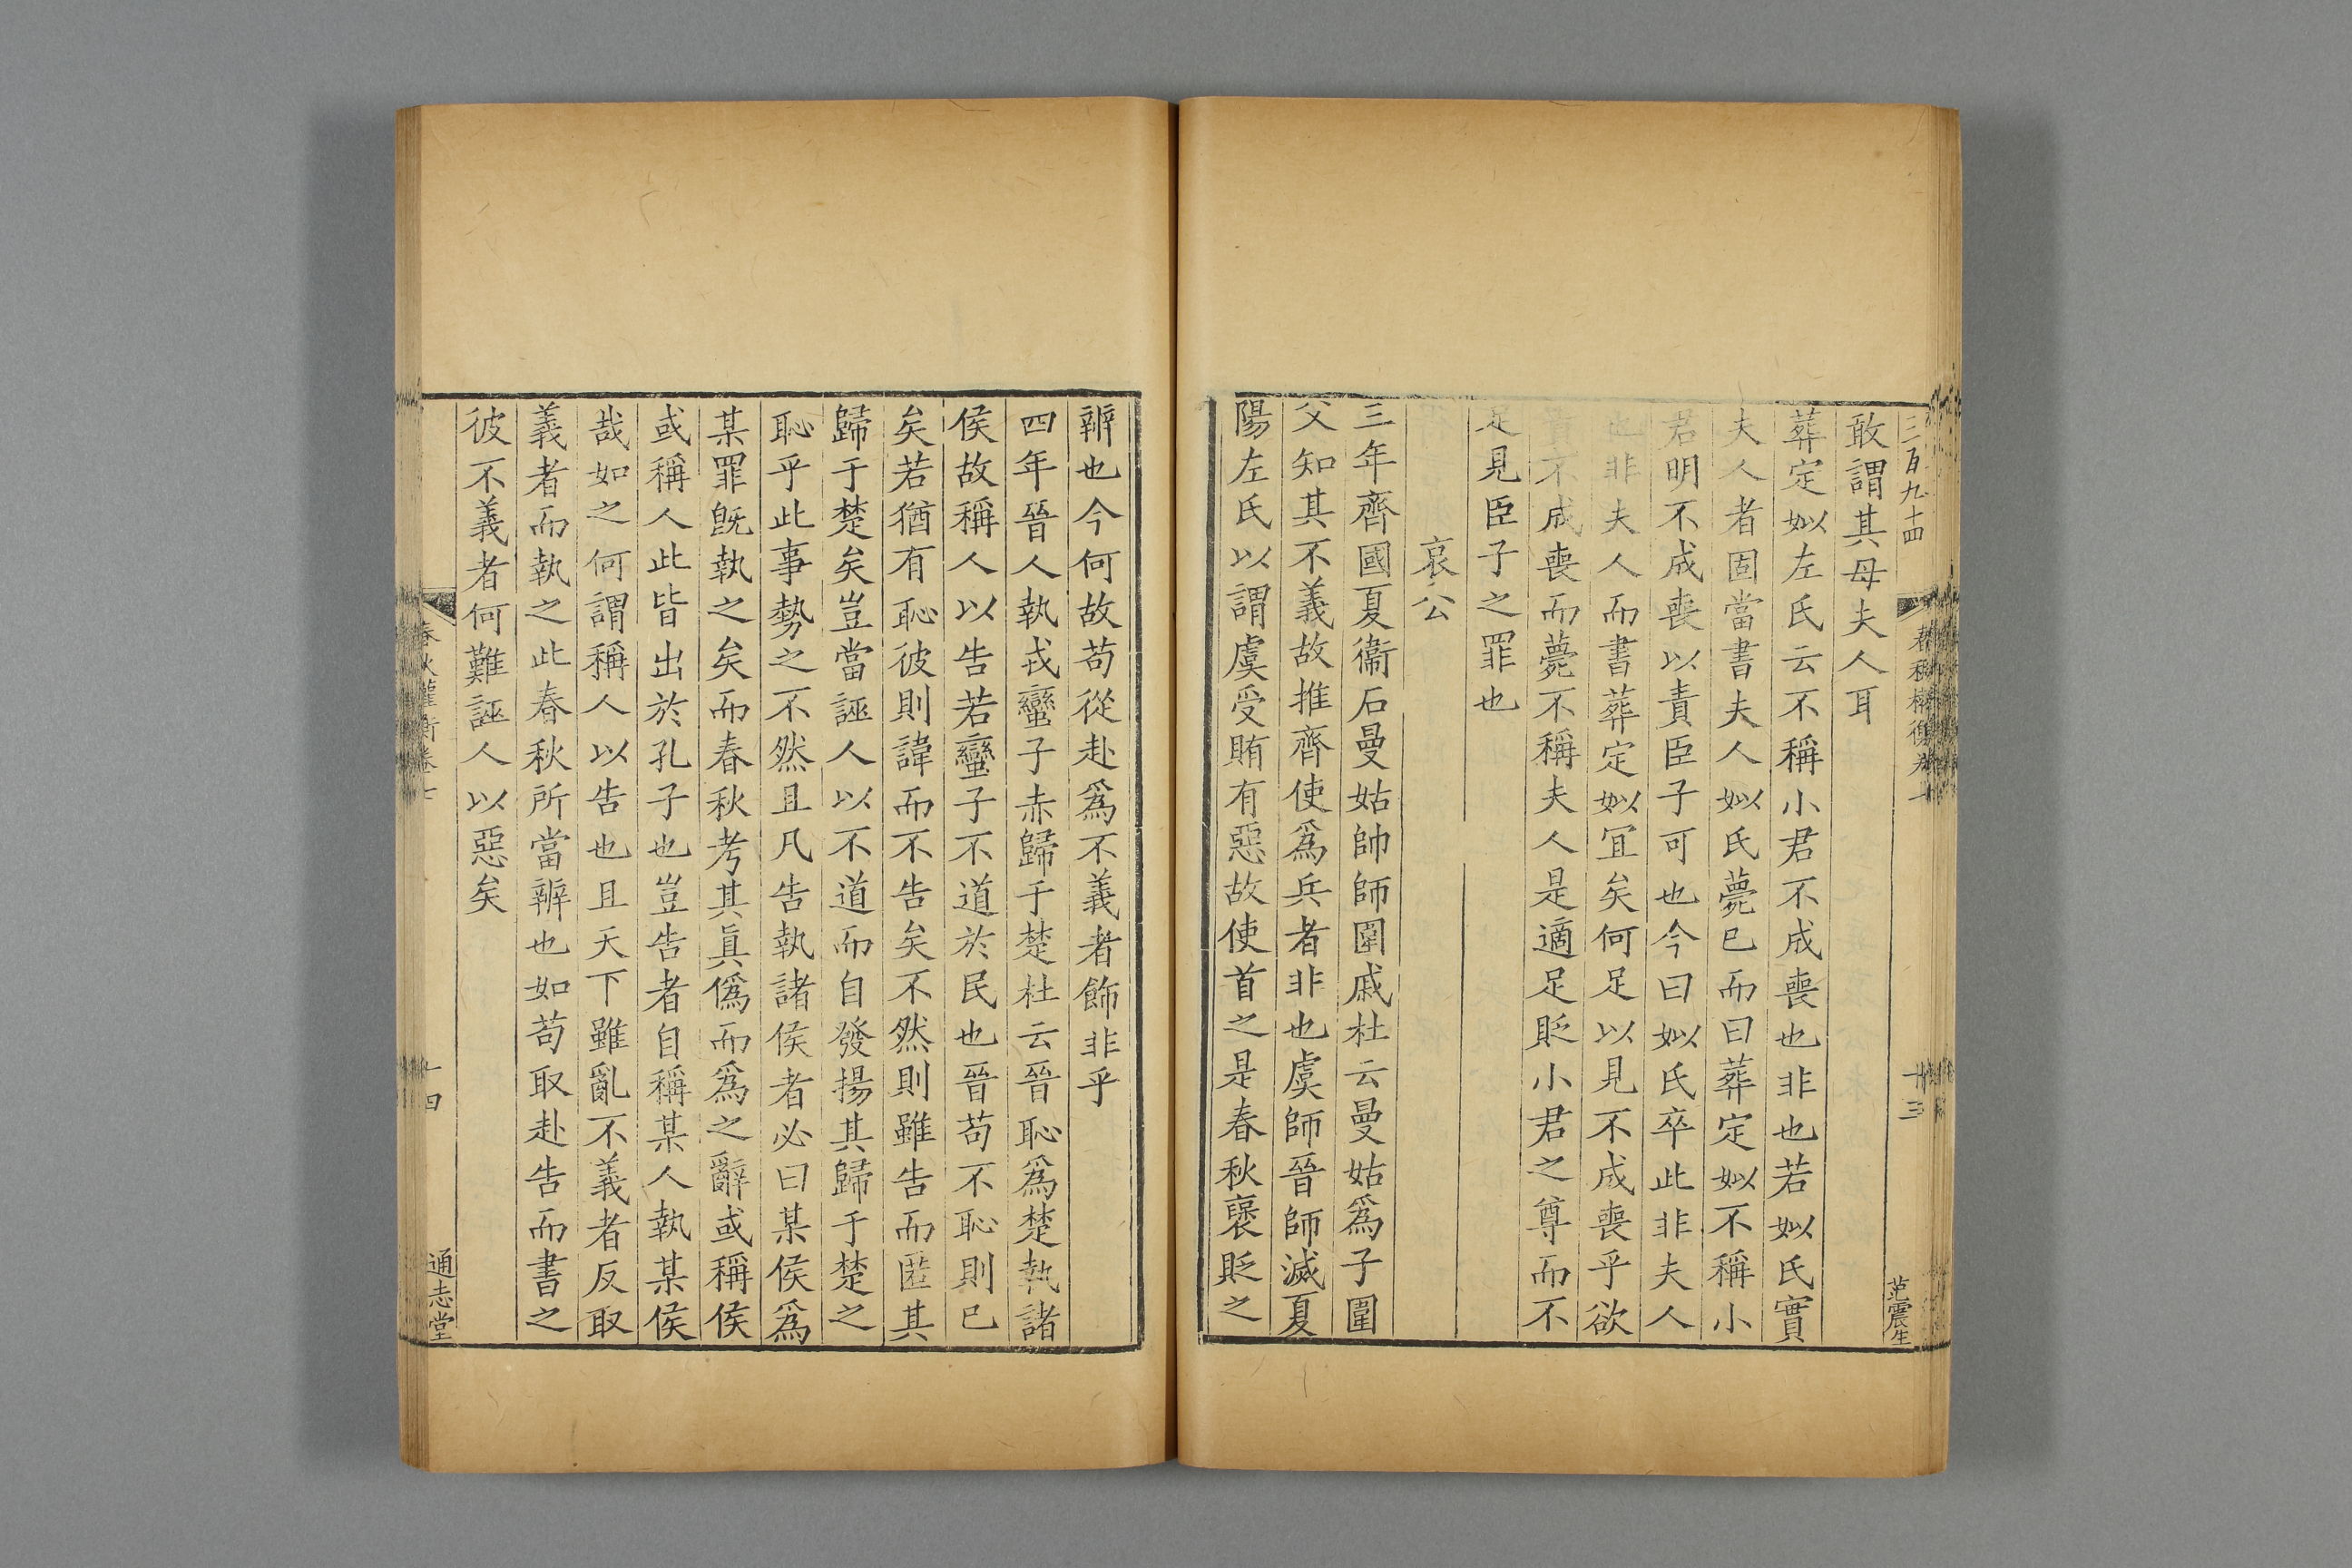 三百九十四
十三
范震生
敢謂其母夫人耳
葬定姒左氏云不稱小君不成喪也非也若姒氏實
夫人者固當書夫人姒氏薨已而曰葬定姒不稱小
君明不成喪以責臣子可也今曰姒氏卒此非夫人
也非夫人而書葬定姒宜矣何足以見不成喪乎欲
不成喪而薨不稱夫人是適足貶小君之尊而不
足見臣子之罪也
哀公
三年齊國夏衞石曼姑帥師圍戚杜云曼姑爲子圍
父知其不義故推齊使爲兵者非也虞師晉師滅夏
陽左氏以謂虞受賄有惡故使首之是春秋襃貶之
辧也今何故苟從赴爲不義者飾非乎
四年晉人執戎蠻子赤歸于楚杜云晉恥爲楚執諸
侯故稱人以告若蠻子不道於民也晉苟不恥則已
矣若猶有恥彼則諱而不告矣不然則雖告而匿其
歸于楚矣豈當誣人以不道而自發揚其歸于楚之
恥乎此事勢之不然且凡告執諸侯者必曰某侯爲
某罪旣執之矣而春秋考其眞僞而爲之辭或稱侯
或稱人此皆出於孔子也豈告者自稱某人執某侯
哉如之何謂稱人以告也且天下雖亂不義者反取
義者而執之此春秋所當辧也如苟取赴告而書之
彼不義者何難誣人以惡矣
春秋權衡卷七
十四
通志堂